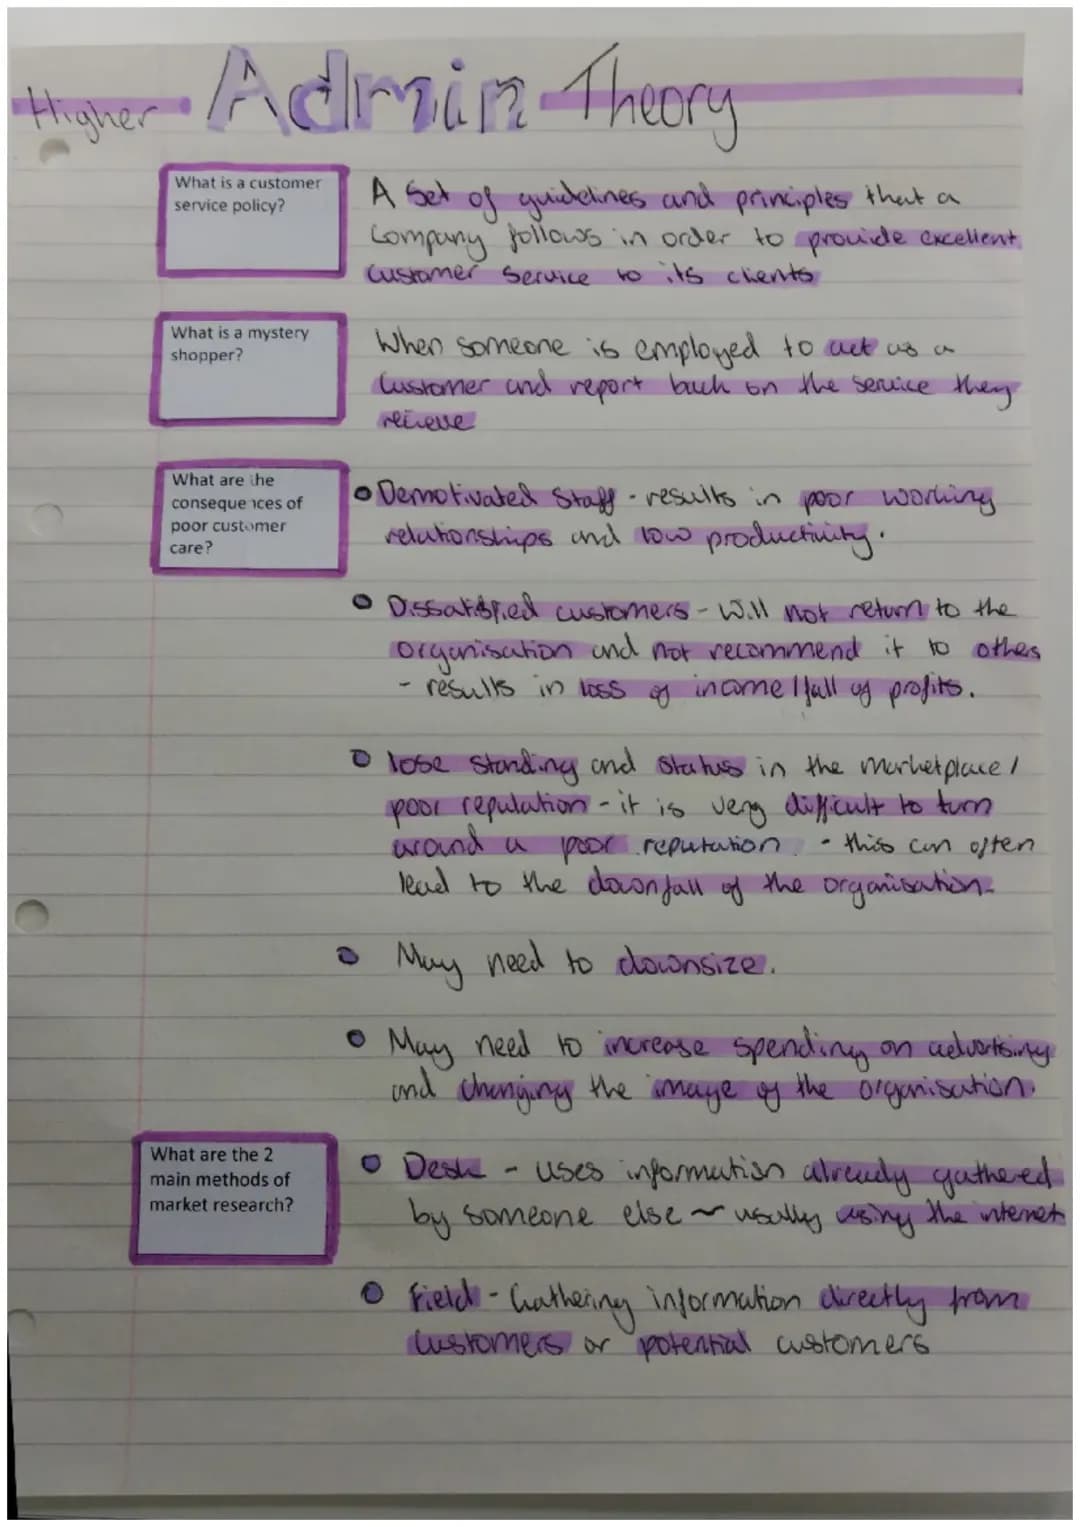 Higher Admin Theory
What is a customer
service policy?
A Set of guidelines and principles that a
Company follows in order to provide excellent
customer service to its clients
What is a mystery
shopper?
When someone is employed to act as a
Customer and report back on the service they
recieve
What are the
consequences of
poor customer
care?
Demotivated Staff - results in poor working
relationships and low productivity.
Dissatisfied customers - will not return to the
organisation and not recommend it to others
- results in loss of income/fall of profits.
lose standing and status in the marketplace/
poor reputation - it is very difficult to turn
around a poor reputation. - this can often
lead to the downfall of the organisation.
May need to downsize.
May need to increase spending on advertising
and changing the image of the organisation.
What are the 2
main methods of
market research?
Desk - uses information already gathered
by someone else - usually using the internet
Field - Gathering information directly from
Customers or potential customers